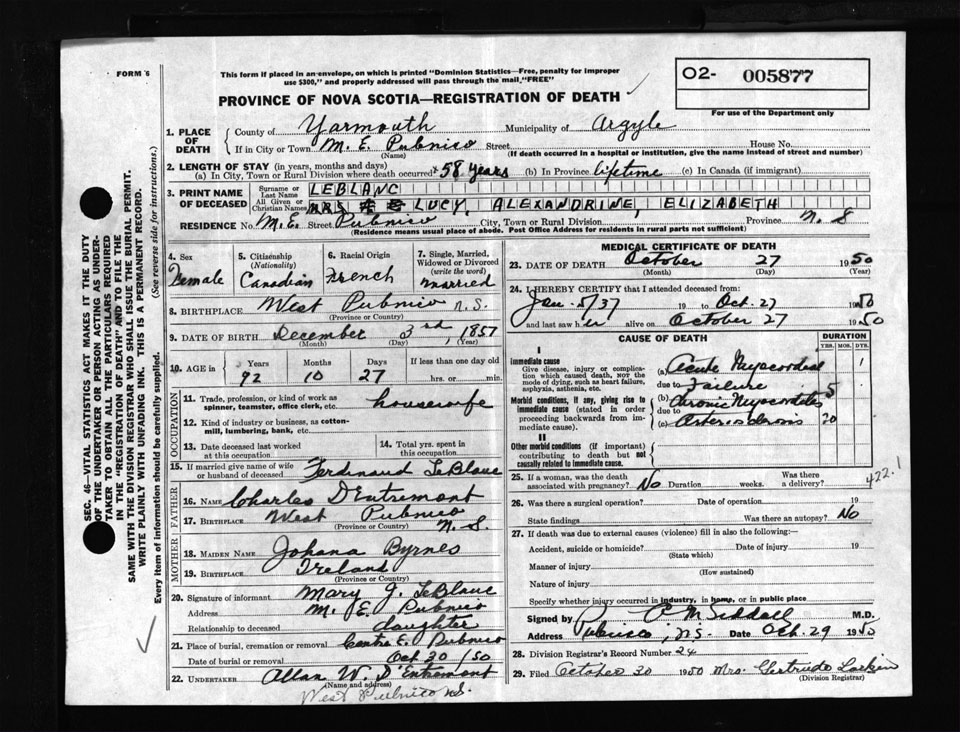 FORM 6
This form if placed in an envelope, on which is printed "Dominion Statistics—Free, penalty for improper
use $300," and properly addressed will pass through the mail "FREE"
PROVINCE OF NOVA SCOTIA—REGISTRATION OF DEATH
02- 005877
For use of the Department only
1. PLACE OF DEATH
County of Yarmouth Municipality of Argyle
If in City or Town M. E. Pubnico Street House No.
(Name) (If death occurred in a hospital or institution, give the name instead of street and number)
2. LENGTH OF STAY (in years, months and days)
(a) In City, Town or Rural Division where death occurred 58 years (b) In Province lifetime (c) In Canada (if immigrant)
3. PRINT NAME OF DECEASED
Surname or Last Name LEBLANC
All Given or Christian Names MRS LUCY, ALEXANDRINE, ELIZABETH
RESIDENCE No. M. E. Street Pubnico City, Town or Rural Division Province N. S
(Residence means usual place of abode. Post Office Address for residents in rural parts not sufficient)
4. Sex Female
5. Citizenship (Nationality) Canadian
6. Racial Origin French
7. Single, Married, Widowed or Divorced (write the word) married
8. BIRTHPLACE West Pubnico N. S.
(Province or Country)
9. DATE OF BIRTH December 3rd, 1857
(Month) (Day) (Year)
10. AGE in Years Months Days If less than one day old
92 10 27 hrs. or min.
OCCUPATION
11. Trade, profession, or kind of work as spinner, teamster, office clerk, etc. housewife
12. Kind of industry or business, as cotton-mill, lumbering, bank, etc.
13. Date deceased last worked at this occupation
14. Total yrs. spent in this occupation
15. If married give name of wife or husband of deceased Ferdinand LeBlanc
FATHER
16. NAME Charles D'Entremont
17. BIRTHPLACE West Pubnico N. S.
(Province or Country)
MOTHER
18. MAIDEN NAME Johana Byrnes
19. BIRTHPLACE Ireland
(Province or Country)
20. Signature of informant Mary J. LeBlanc
Address M. E. Pubnico
Relationship to deceased daughter
21. Place of burial, cremation or removal Centre E. Pubnico
Date of burial or removal Oct 30/50
22. UNDERTAKER Allan W. D'Entremont
(Name and address)
West Pubnico N.S.
MEDICAL CERTIFICATE OF DEATH
23. DATE OF DEATH October 27 1950
(Month) (Day) (Year)
24. I HEREBY CERTIFY that I attended deceased from:
Jan. 5/37 19 to Oct. 27 1950
and last saw her alive on October 27 1950
CAUSE OF DEATH
DURATION
YRS. MOS. DYS.
I
Immediate cause
Give disease, injury or complication which caused death, NOT the mode of dying, such as heart failure, asphyxia, asthenia, etc.
(a) Acute Myocardial 1
due to Failure
Morbid conditions, if any, giving rise to immediate cause (stated in order proceeding backwards from immediate cause).
(b) Chronic Myocarditis 5
due to
(c) Arteriosclerosis 20
II
Other morbid conditions (if important) contributing to death but not causally related to immediate cause.
25. If a woman, was the death associated with pregnancy? No Duration weeks. Was there a delivery?
422.1
26. Was there a surgical operation? Date of operation 19
State findings Was there an autopsy? No
27. If death was due to external causes (violence) fill in also the following:—
Accident, suicide or homicide? Date of injury 19
(State which)
Manner of injury
(How sustained)
Nature of injury
Specify whether injury occurred in industry, in home, or in public place
Signed by P. C. M Siddall M.D.
Address Pubnico, N.S. Date Oct. 29 1950
28. Division Registrar's Record Number 24
29. Filed October 30 1950 Mrs Gertrude Larkin
(Division Registrar)
SEC. 46—VITAL STATISTICS ACT MAKES IT THE DUTY
OF THE UNDERTAKER OR PERSON ACTING AS UNDER-
TAKER TO OBTAIN ALL THE PARTICULARS REQUIRED
IN THE "REGISTRATION OF DEATH" AND TO FILE THE
SAME WITH THE DIVISION REGISTRAR WHO SHALL ISSUE THE BURIAL PERMIT.
WRITE PLAINLY WITH UNFADING INK. THIS IS A PERMANENT RECORD.
Every item of information should be carefully supplied. (See reverse side for instructions.)